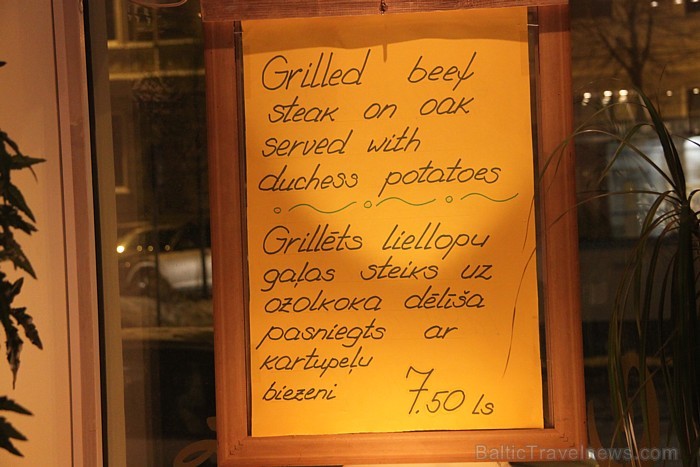 Grilled beef
steak on oak
served with
duchess potatoes
Grillēts liellopu
gaļas steiks uz
ozolkoka dēlīša
pasniegts ar
kartupeļu
biezeni 7.50 Ls
BalticTravelnews.com